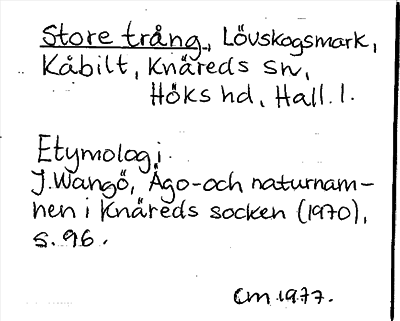 Store trång, Lövskogsmark,
Kåbilt, Knäreds sn,
Höks hd, Hall. l.
Etymologi.
J. Wangö, Ägo- och naturnam-
nen i Knäreds socken (1970),
s. 96.
CM 1977.